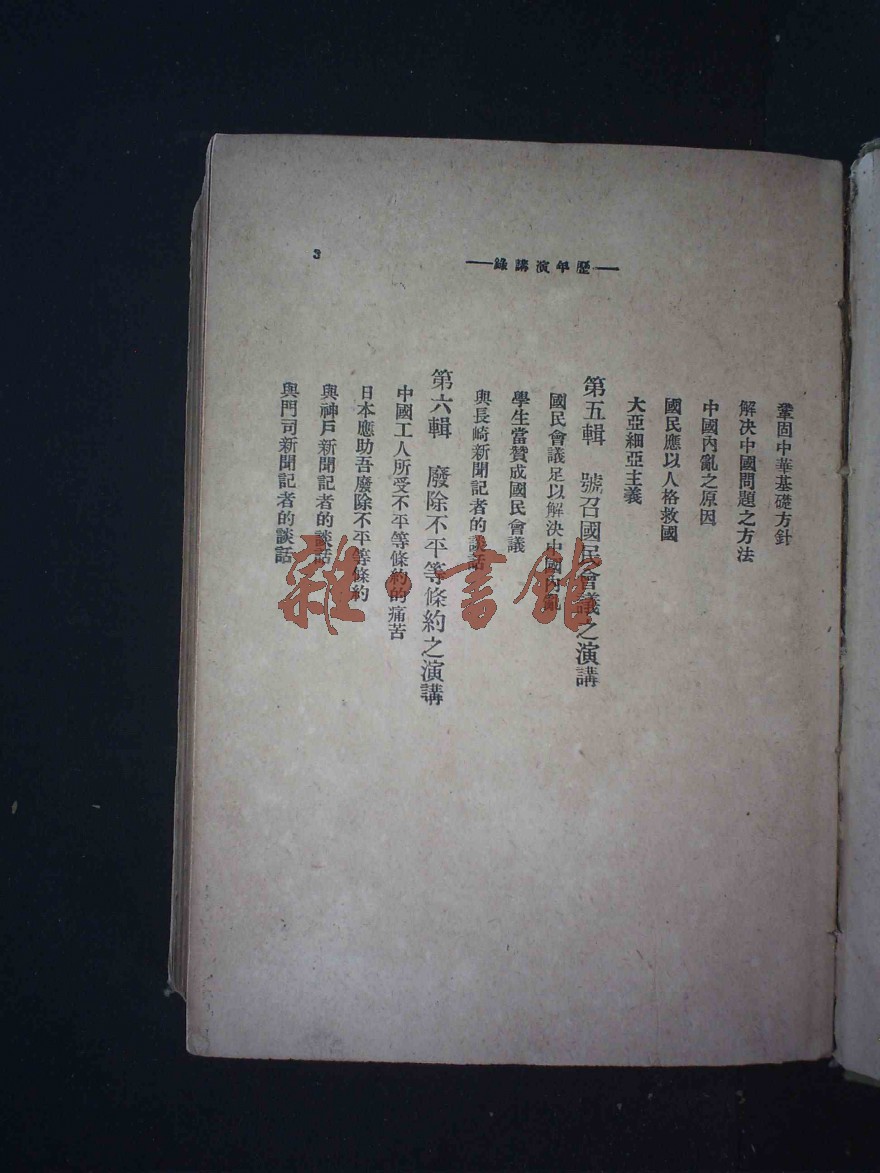 歷年演講錄
3
鞏固中華基礎方針
解決中國問題之方法
中國內亂之原因
國民應以人格救國
大亞細亞主義
第五輯 號召國民會議之演講
國民會議足以解決中國內亂
學生當贊成國民會議
與長崎新聞記者的談話
第六輯 廢除不平等條約之演講
中國工人所受不平等條約的痛苦
日本應助吾廢除不平等條約
與神戶新聞記者的談話
與門司新聞記者的談話
雜·書館